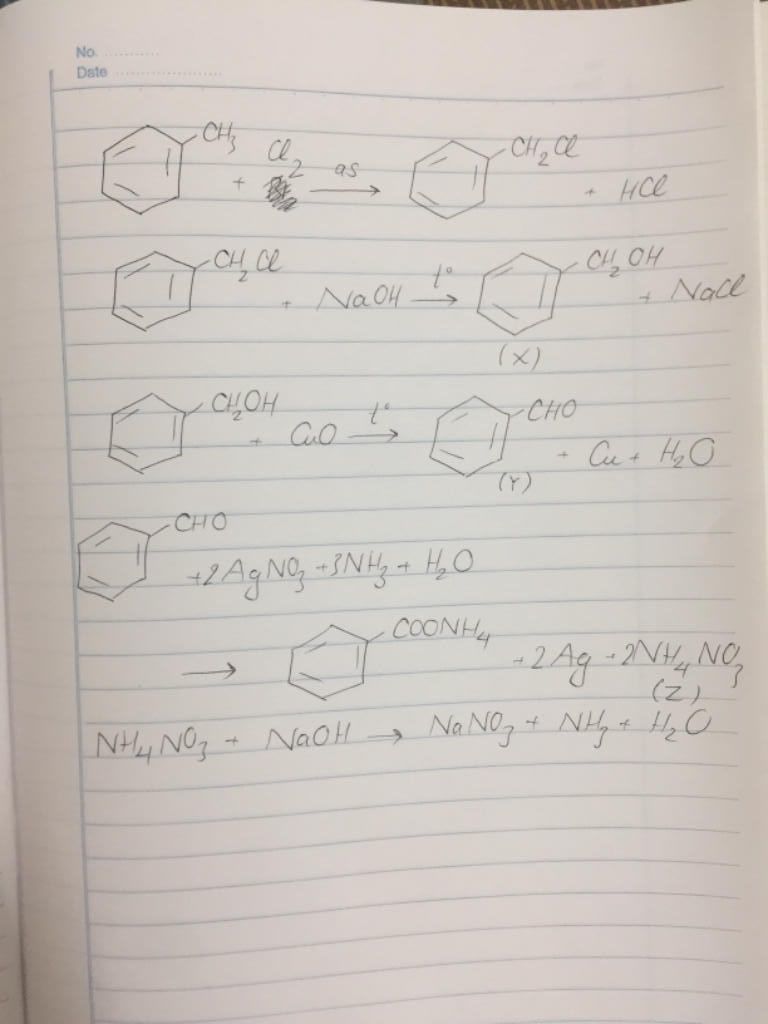 No. ............
Date ........................
CH3 + Cl2 as → CH2Cl + HCl
CH2Cl + NaOH t° → CH2OH + NaCl
(X)
CH2OH + CuO t° → CHO + Cu + H2O
(Y)
CHO
+2AgNO3 +3NH3 + H2O
→ COONH4 +2Ag +2NH4NO3
(Z)
NH4NO3 + NaOH → NaNO3 + NH3 + H2O